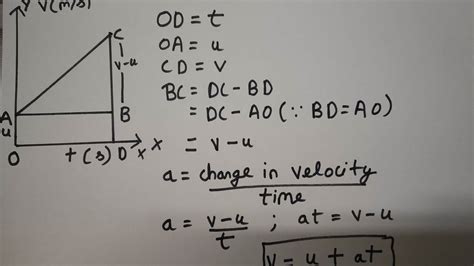 y v(m/s)
C
v-u
A
u
B
O
t(s) D x x
OD = t
OA = u
CD = v
BC = DC - BD
= DC - AO (∵ BD = AO)
= v-u
a = change in velocity
time
a = v-u
t
; at = v-u
v = u + at